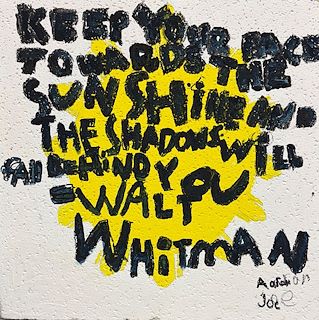 KEEP YOUR FACE
TOWARDS THE
SUNSHINE AND
THE SHADOWS WILL
FALL BEHIND YOU
= WALT
WHITMAN
Joe